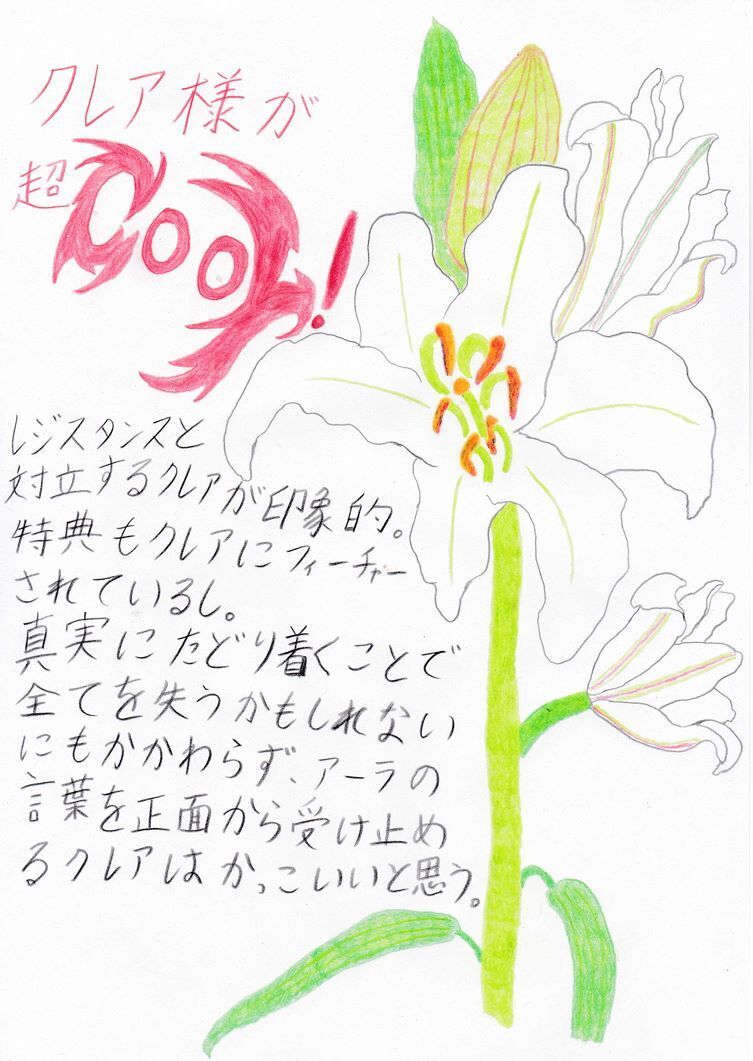 クレア様が
超Cool!
レジスタンスと
対立するクレアが印象的。
特典もクレアにフィーチャー
されているし。
真実にたどり着くことで
全てを失うかもしれない
にもかかわらず、アーラの
言葉を正面から受け止め
るクレアはかっこいいと思う。